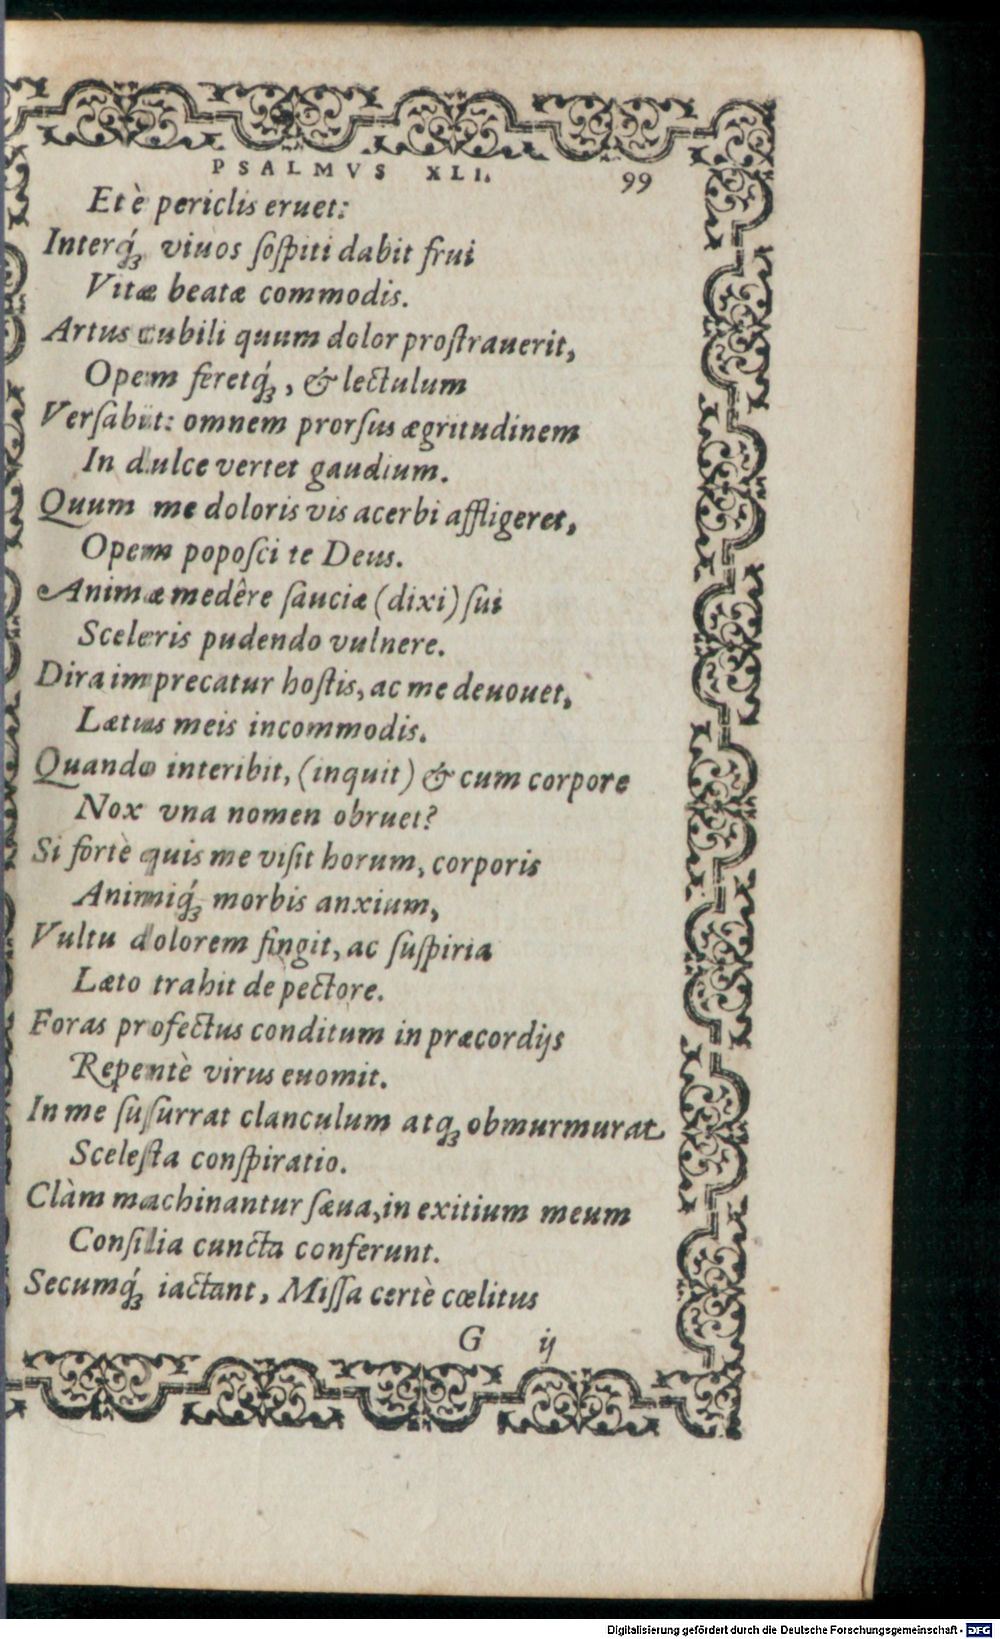 PSALMVS XLI. 99
Et è periclis eruet:
Interq́ꝫ viuos ſoſpiti dabit frui
Vitæ beatæ commodis.
Artus cubili quum dolor proſtrauerit,
Opem feretq́ꝫ, & lectulum
Verſabit: omnem prorſus ægritudinem
In dulce vertet gaudium.
Quum me doloris vis acerbi affligeret,
Opem popoſci te Deus.
Animæ medêre ſauciæ (dixi) ſui
Sceleris pudendo vulnere.
Dira imprecatur hoſtis, ac me deuouet,
Lætus meis incommodis.
Quando interibit, (inquit) & cum corpore
Nox vna nomen obruet?
Si fortè quis me viſit horum, corporis
Animiq́ꝫ morbis anxium,
Vultu dolorem fingit, ac ſuſpiria
Læto trahit de pectore.
Foras profectus conditum in præcordijs
Repentè virus euomit.
In me ſuſurrat clanculum atqꝫ obmurmurat
Sceleſta conſpiratio.
Clàm machinantur ſæua, in exitium meum
Conſilia cuncta conferunt.
Secumq́ꝫ iactant, Miſſa certè cœlitus
G ij
Digitalisierung gefördert durch die Deutsche Forschungsgemeinschaft - DFG